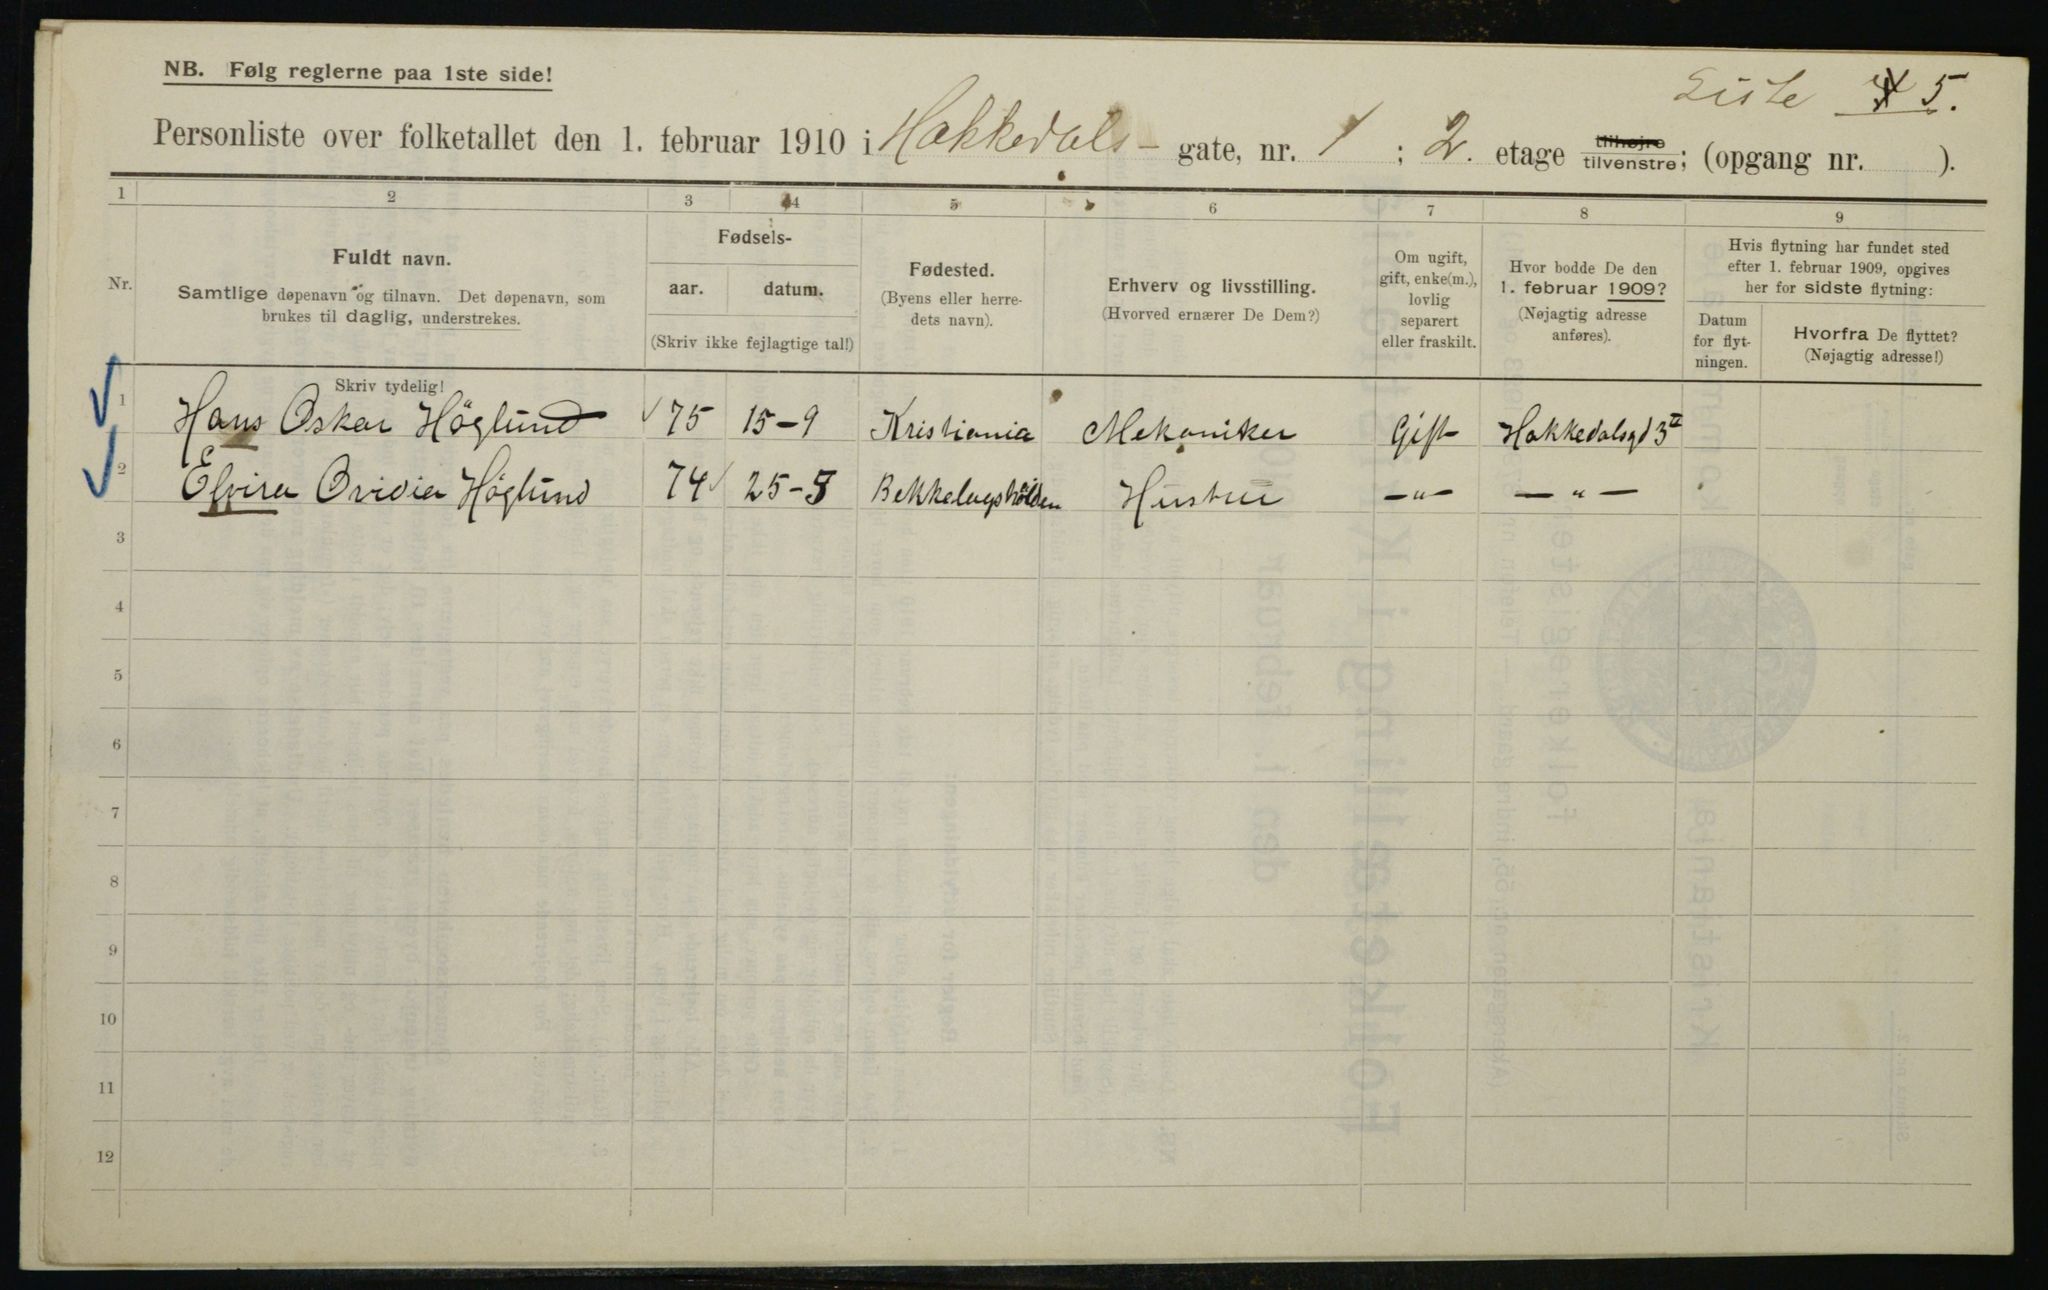 NB. Følg reglerne paa 1ste side!
Liste 5.
Personliste over folketallet den 1. februar 1910 i Hakkedals- gate, nr. 1 ; 2. etage tilhøjre tilvenstre; (opgang nr. ).
1 2 3 4 5 6 7 8 9
Nr.
Fuldt navn.
Samtlige døpenavn og tilnavn. Det døpenavn, som
brukes til daglig, understrekes.
Fødsels-
aar. datum.
(Skriv ikke fejlagtige tal!)
Fødested.
(Byens eller herre-
dets navn).
Erhverv og livsstilling.
(Hvorved ernærer De Dem?)
Om ugift,
gift, enke(m.),
lovlig
separert
eller fraskilt.
Hvor bodde De den
1. februar 1909?
(Nøjagtig adresse
anføres).
Hvis flytning har fundet sted
efter 1. februar 1909, opgives
her for sidste flytning:
Datum
for flyt-
ningen.
Hvorfra De flyttet?
(Nøjagtig adresse!)
Skriv tydelig!
1 Hans Oskar Höglund 75 15-9 Kristiania Mekaniker Gift Hakkedalsgd 3 II
2 Elvira Ovidia Höglund 74 25-5 Bekkelagshöiden Hustru -"- -"-
3
4
5
6
7
8
9
10
11
12